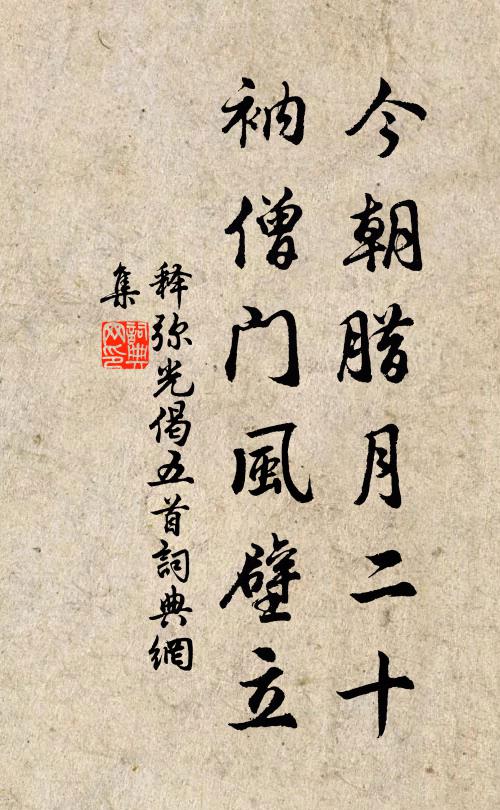 今朝腊月二十
衲僧门風壁立
释弥光偈五首詞典網
集
詞典網印